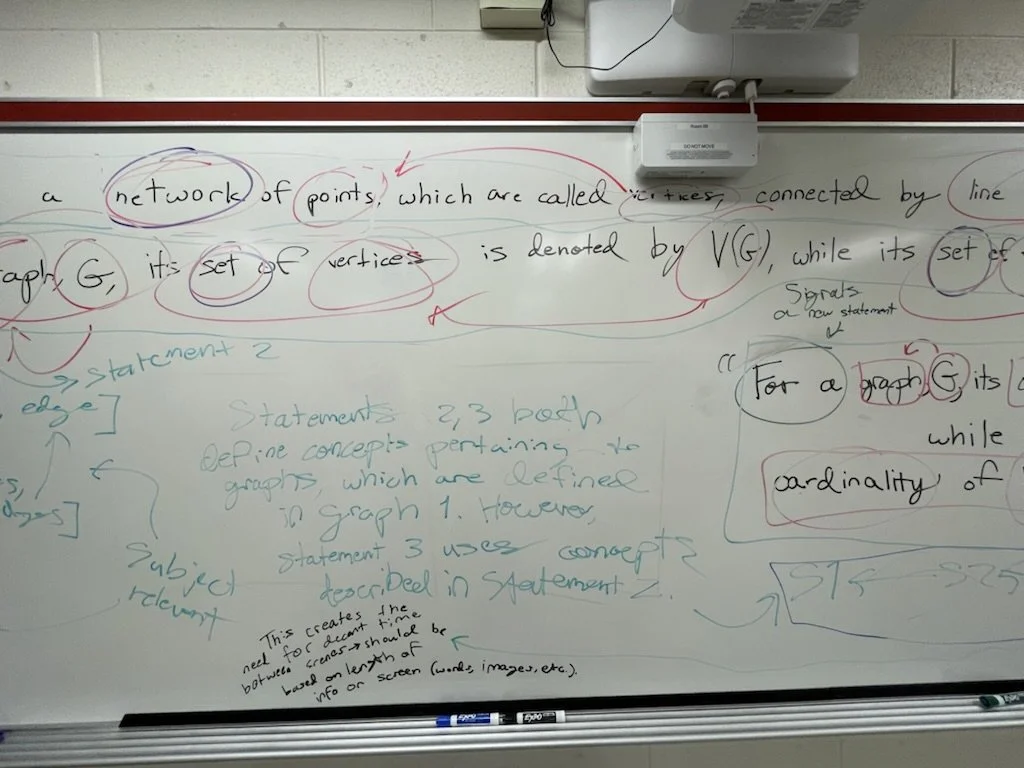 a network of points, which are called vertices, connected by line
aph, G, its set of vertices is denoted by V(G), while its set of
Signals
a new statement
statement 2
edge]
"For a graph, G, its
while
cardinality of
Statements 2,3 both
define concepts pertaining to
graphs, which are defined
in graph 1. However,
statement 3 uses concepts
described in Statement 2.
Subject
relevant
S1 S2
This creates the
need for decent time
between scenes → should be
based on length of
info on screen (words, images, etc.).
DO NOT MOVE
EXPO
EXPO